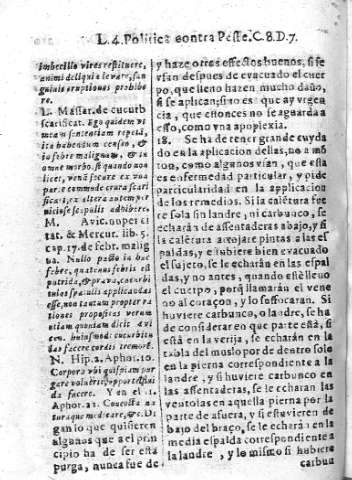 L.4. Politica contra Peste. C.8. D.7.
imbecillo vires restituere,
animi deliquia levare, san
guinis eruptiones prohibe
re.
L. Massar. de cucurb
scarificat. Ego quidem
sententiam
ita habendum censeo, &
in febre maligna, & in
omne morbo. si quando non
licet, vena secare ex una
parte commode crura scari
ficari, ex altera autem per
niciose scapulis adhiberes
M. Avi. noper ci
tat. & Mercur. lib. 5.
cap. 17. de febr. malig
na. Nullo pacto in huc
febre, quatenus febris est
putrida, & prava, concavi
tulas spatulis applicandas
esse, non tantum propter ra
tiones propositas verum
etiam quoniam dicit avi
cen. huiusmodi cucurbitu
las facere cordis tremorẽ.
N. Hip. 2. Aphor. 10.
Corpora ubi quispiam pur
gare voluerit, oportet flui
da facere. Y en el 1.
Aphor. 22. Concocta me
dicare, &c. D.
gan lo que quisieren
algunos que ael prin
cipio ha de ser esta
purga, nunca fue de
y haze otros effectos buenos, si se
vsan despues de evacuado el cuer
po, que lleno hazen mucho daño,
si se aplican; sino es que ay vrgen
cia, que entonces no se aguarda a
esso, como vna apoplexia.
18. Se ha de tener grande cuyda
do en la applicacion dellas, no a mõ
ton, como algunos vian, que esta
es enfermedad particular, y pide
particularidad en la applicacion
de los remedios. Si la calẽtura fue
re sola sin landre, ni carbunco, se
echarã de assentaderas abajo, y si
la calẽtura arrojare pintas a las es
paldas, y estubiere bien evacuado
el sujeto, se le echarã en las espal
das, y no antes, quando estè lleno el
cuerpo, porq̃ llamarãn el vene
no al coraçon, y lo soffocaran. Si
huviere carbunco, o landre, se ha
de considerar en que parte està, si
està en la verija, se echarán en la
tabla del muslo por de dentro solo
en la pierna correspondiente a la
landre, y si huviere carbunco en
las assentaderas, se le echaran las
ventosas en aquella pierna por la
parte de afuera, y si estuvieren de
bajo del braço, se le echarà en la
media espalda correspondiente a
la landre, y lo mismo si hubiere
carbun